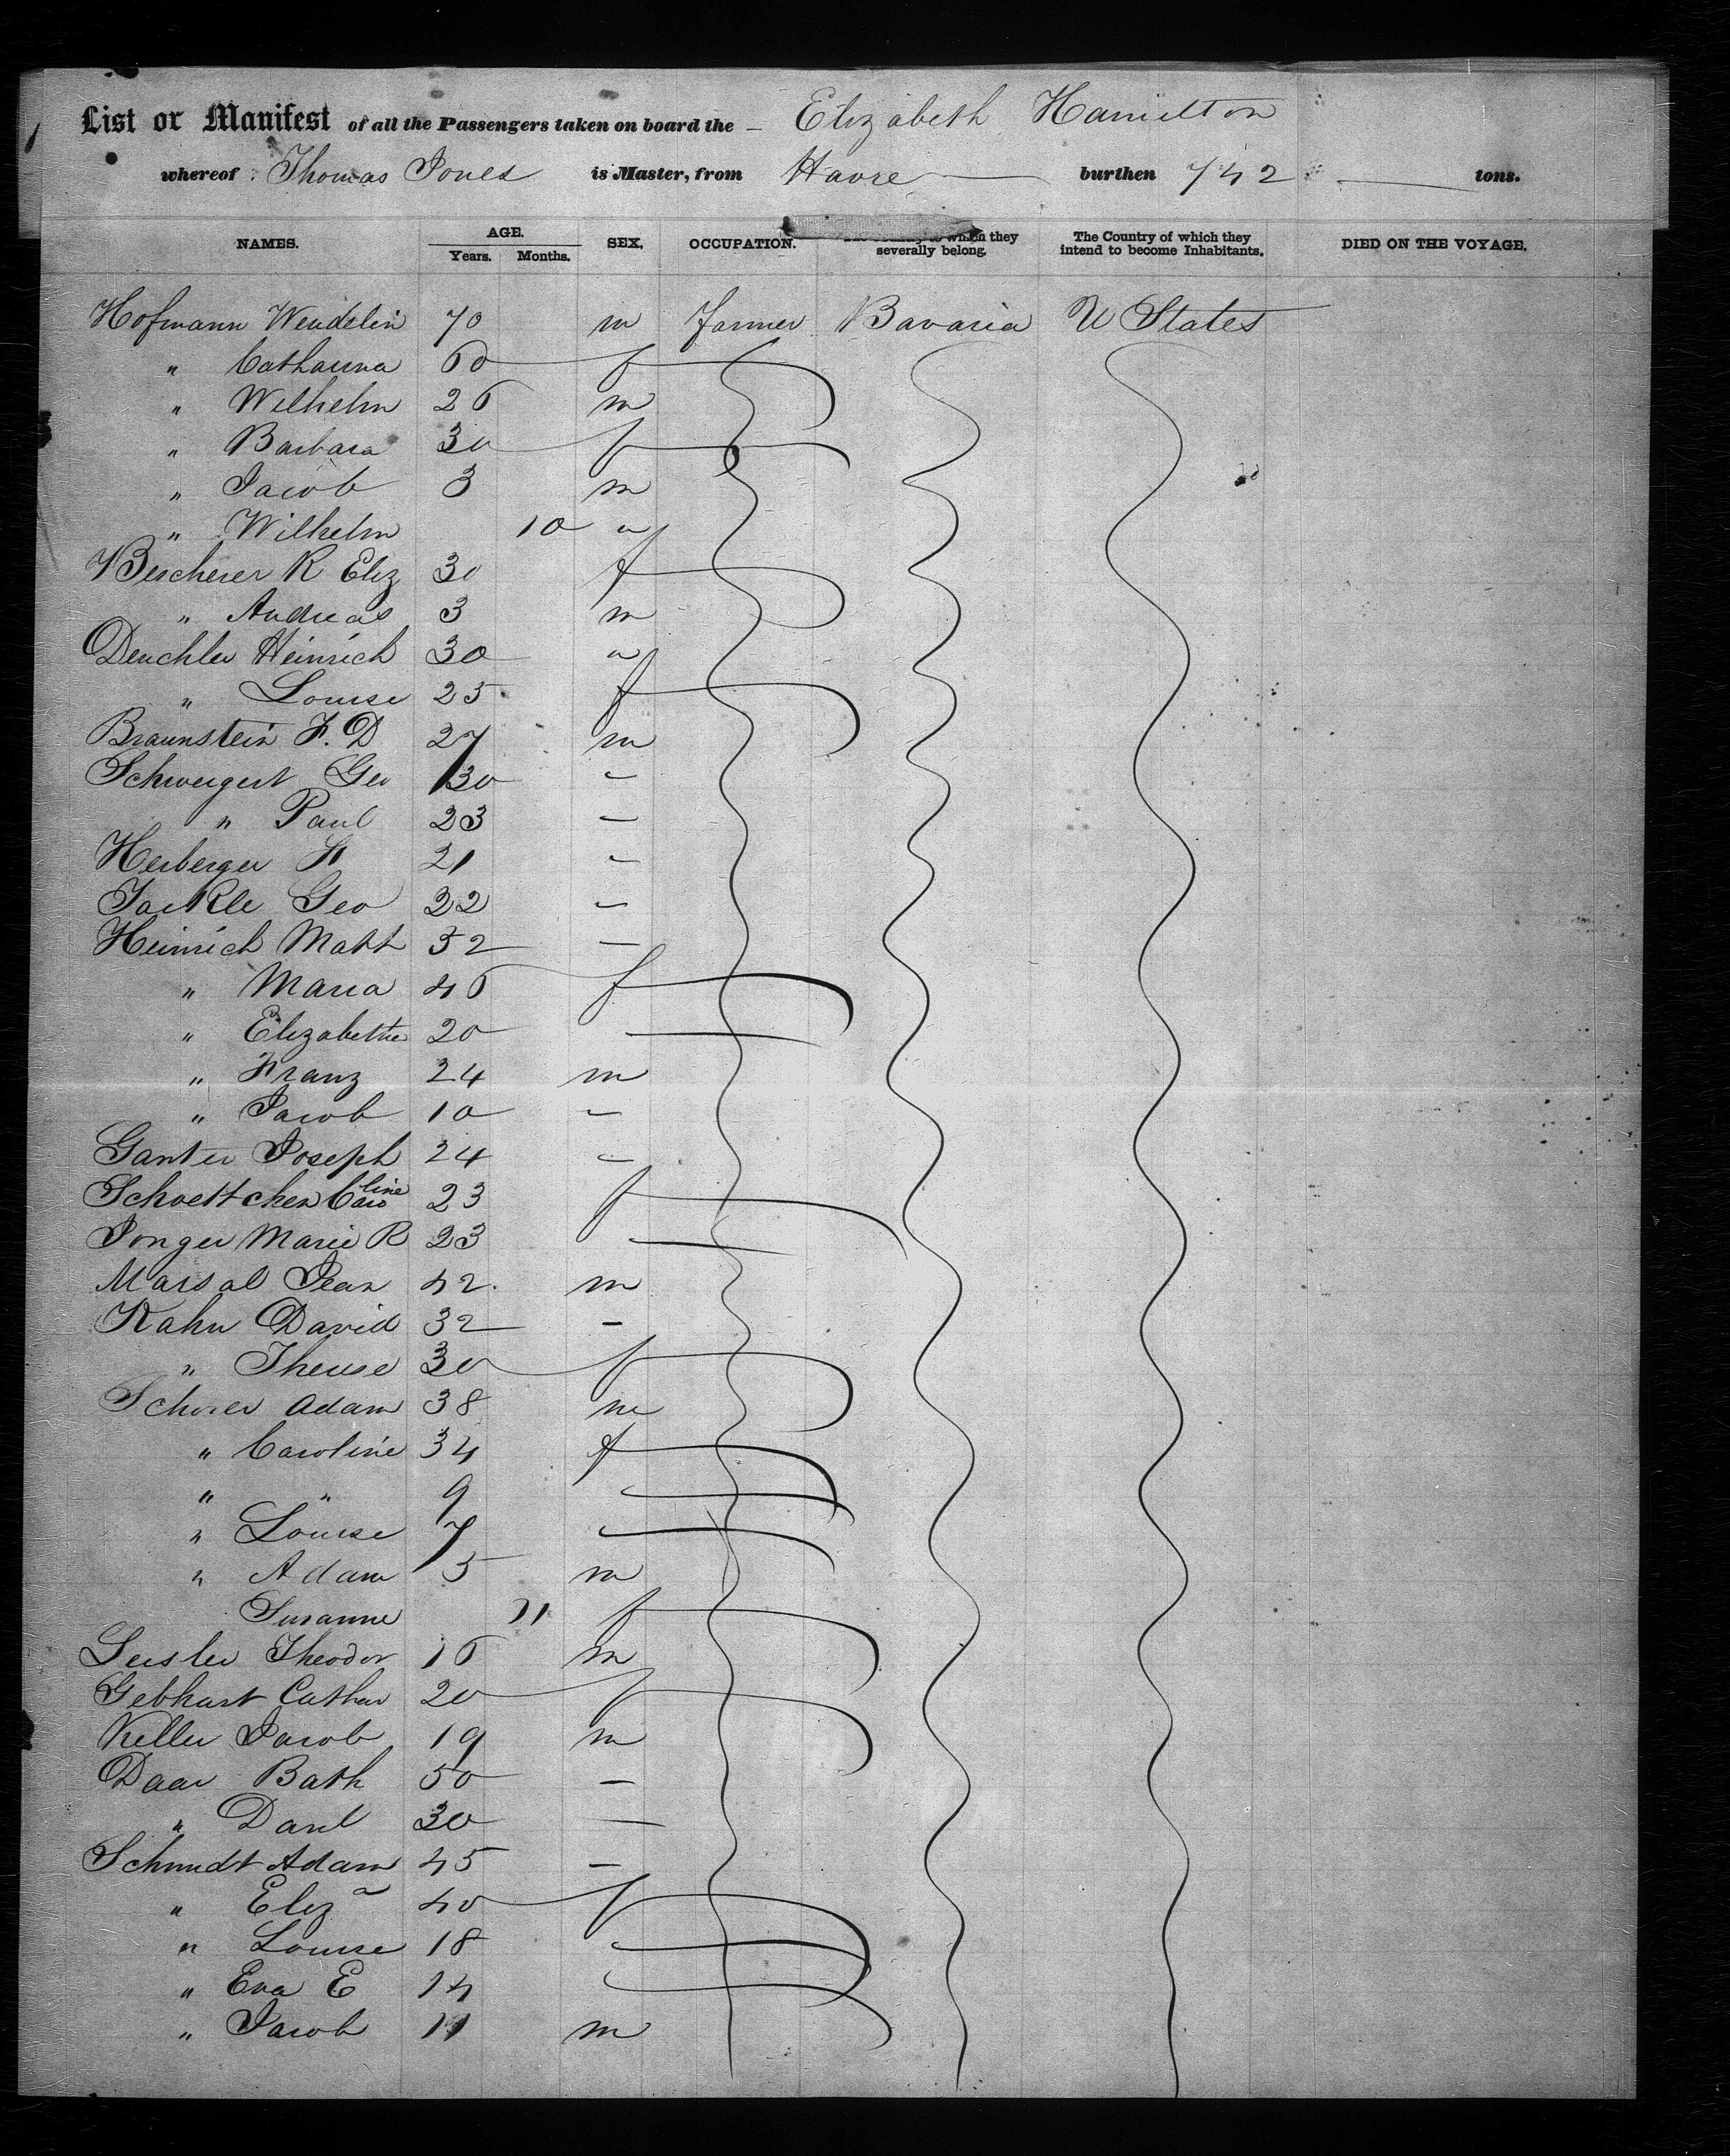 List or Manifest of all the Passengers taken on board the - Elizabeth Hamilton
whereof Thomas Jones is Master, from Havre burthen 742 tons.
NAMES. AGE. Years. Months. SEX. OCCUPATION. which they severally belong. The Country of which they intend to become Inhabitants. DIED ON THE VOYAGE.
Hofmann Wendelin 70 m farmer Bavaria U States
" Catharina 60 f
" Wilhelm 26 m
" Barbara 30 f
" Jacob 3 m
" Wilhelm 10 "
Bescherer R Eliz 30 f
" Andreas 3 m
Deuchler Heinrich 30 "
" Louise 25 f
Braunstein F. D 27 m
Schweigert Geo 30 -
" Paul 23 -
Herberger H 21 -
Jackle Geo 22 -
Heinrich Math 52 -
" Maria 46 f
" Elizabethe 20
" Franz 24 m
" Jacob 10 -
Ganter Joseph 24 -
Schoettchen Caroline 23 f
Jonger Marie R 23
Marsal Jean 42 m
Kahn David 32 -
" Therese 30 f
Scherer Adam 38 m
" Caroline 34 f
" " 9
" Louise 7
" Adam 5 m
Susanne 11 f
Leisler Theodor 16 m
Gebhart Cathar 20 f
Keller Jacob 19 m
Daar Bath 50 -
" Danl 30 -
Schmidt Adam 45 -
" Eliza 40 f
" Louise 18
" Eva E 14
" Jacob 11 m